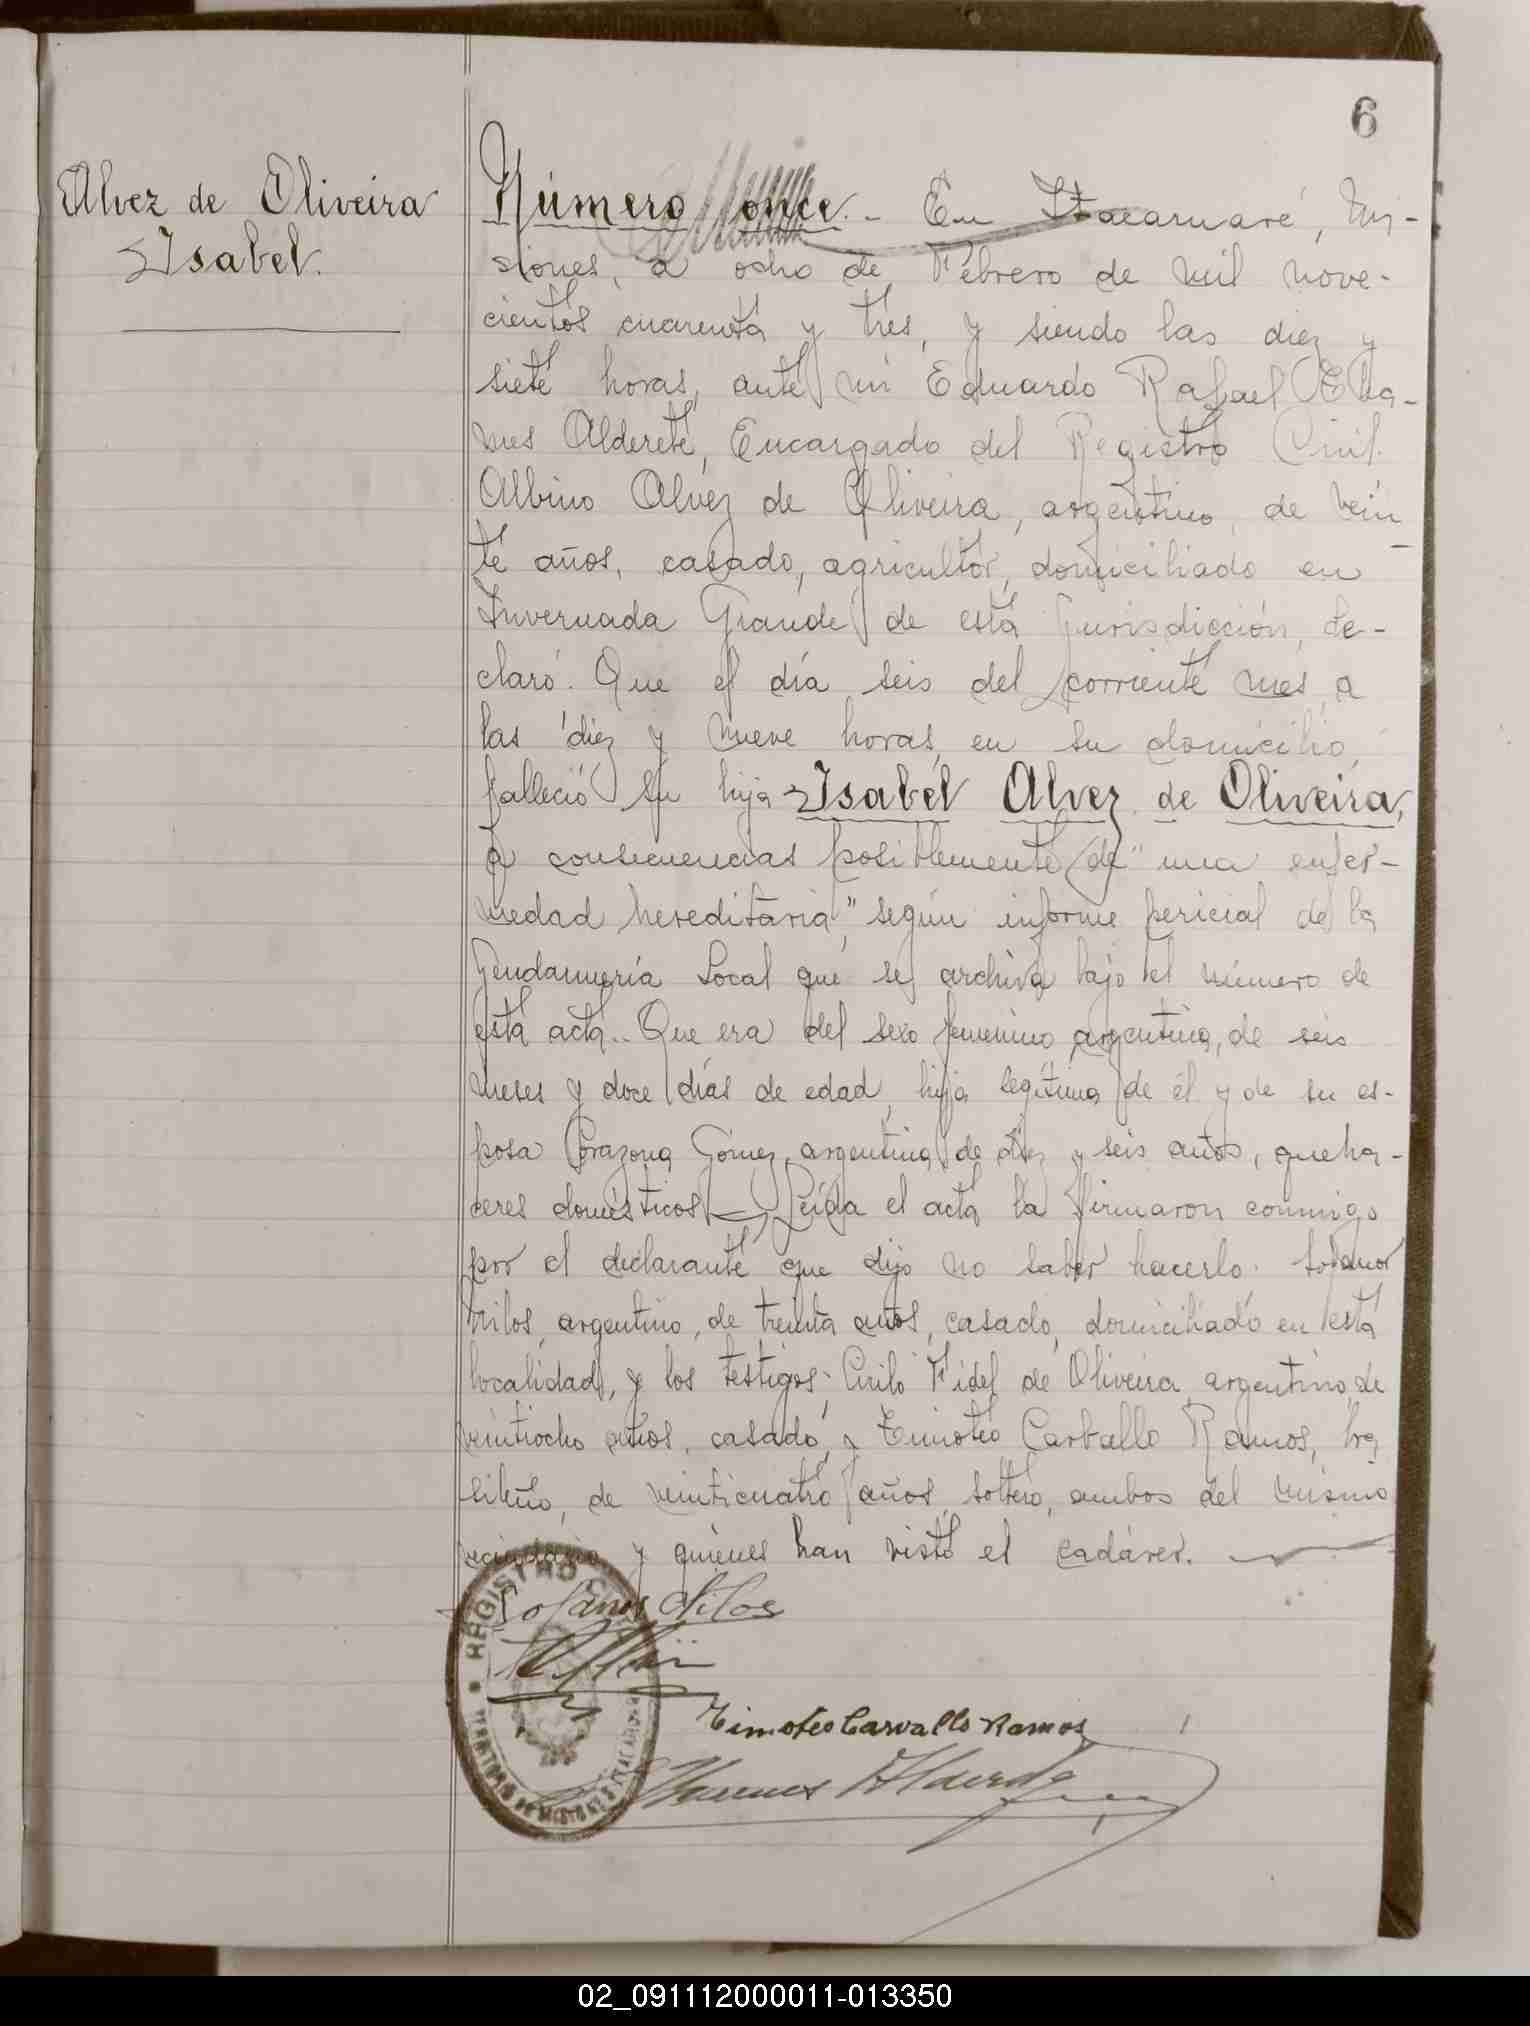 6
Alvez de Oliveira
Isabel.
Número once.- En Itacaruaré, Mi-
siones, a ocho de Febrero de mil nove-
cientos cuarenta y tres, y siendo las diez y
siete horas, ante mi Eduardo Rafael
Alderete, Encargado del Registro Civil.
Albino Alvez de Oliveira, argentino, de vein
te años, casado, agricultor, domiciliado en
Invernada Grande de esta jurisdicción, de-
claró: Que el día seis del corriente mes, a
las diez y nueve horas, en su domicilio,
falleció su hija Isabel Alvez de Oliveira,
a consecuencias posiblemente de "una enfer-
medad hereditaria", según informe pericial de la
Gendarmería Local que se archiva bajo el número de
esta acta.. Que era del sexo femenino, argentina, de seis
meses y doce días de edad, hija legítima de él y de su es-
posa Corazona Gómez, argentina, de diez y seis años, queha-
ceres domésticos. Leída el acta la firmaron conmigo
por el declarante que dijo no saber hacerlo:
argentino, de treinta años, casado, domiciliado en esta
localidad, y los testigos: Cirilo Fidel de Oliveira, argentino, de
veintiocho años, casado, y Timoteo Carballo Ramos, bra
sileño, de veinticuatro años, soltero, ambos del mismo
vecindario y quienes han visto el cadáver.
REGISTRO CIVIL
Timoteo Carvallo Ramos
Alderete
02_091112000011-013350